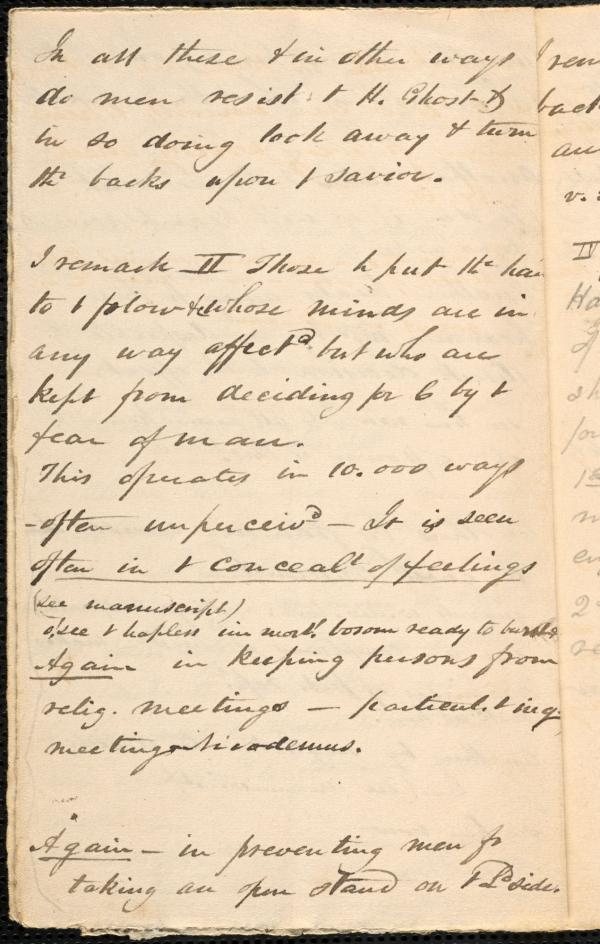 In all these & in other ways
do men resist t H. Ghost - &
in so doing look away & turn
thr backs upon t Savior.
I remark II Those h put thr han
to t plow & whose minds are in
any way affectd but who are
kept from deciding for C by t
fear of man.
This operates in 10.000 ways
- often unperceivd - It is seen
often in t concealt of feelings
(see manuscript)
o! see t hapless bosom ready to burst &
Again in keeping persons from
relig. meetings - particul. t inq.
meetings Nicodemus.
Again - in preventing men fr
taking an open stand on t Ld side.